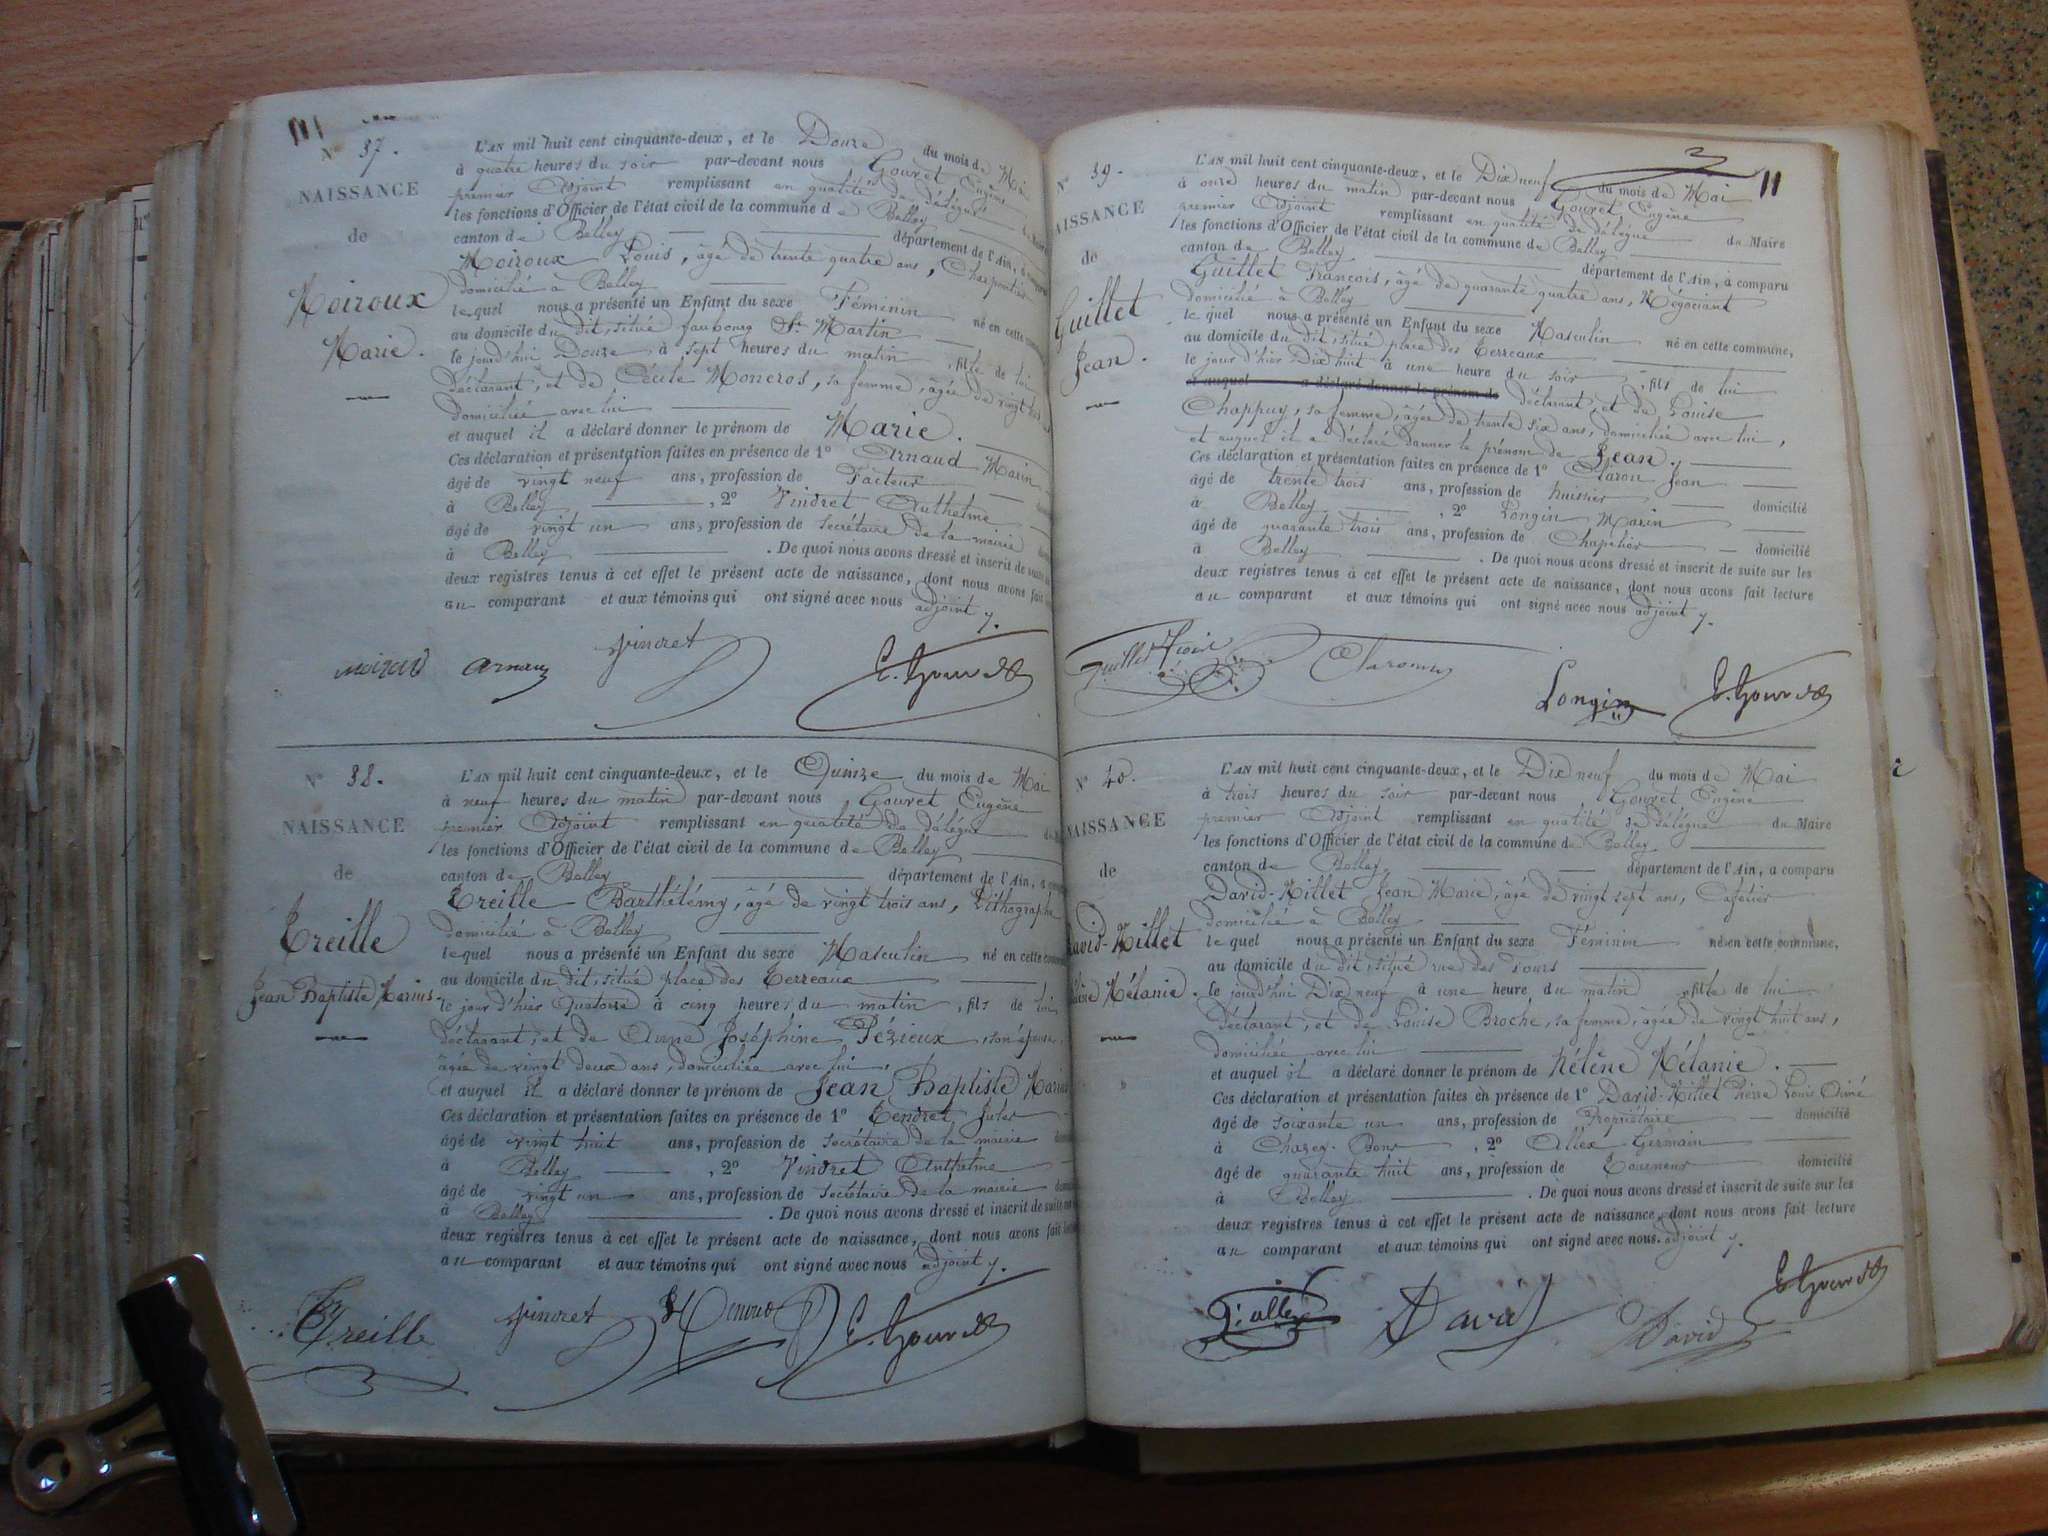 N° 37.
NAISSANCE
de
Moiroux
Marie.
L'AN mil huit cent cinquante-deux, et le Douze du mois de Mai
à quatre heures du soir par-devant nous Gouret Eugène
premier Adjoint remplissant en qualité de délégué du Maire
les fonctions d'Officier de l'état civil de la commune de Belley
canton de Belley département de l'Ain, a comparu
Moiroux Louis, âgé de trente quatre ans, Charpentier
domicilié à Belley
lequel nous a présenté un Enfant du sexe Féminin né en cette
au domicile du dit, situé faubourg St Martin
le jourd'hui Douze à sept heures du matin, fille de lui
déclarant, et de Cécile Moncros, sa femme, âgée de vingt
domiciliée avec lui
et auquel il a déclaré donner le prénom de Marie.
Ces déclaration et présentation faites en présence de 1° Arnaud Marin
âgé de vingt neuf ans, profession de Facteur
à Belley, 2° Vindret Anthelme
âgé de vingt un ans, profession de secrétaire de la mairie
à Belley. De quoi nous avons dressé et inscrit de suite
deux registres tenus à cet effet le présent acte de naissance, dont nous avons fait
au comparant et aux témoins qui ont signé avec nous adjoint
Arnaud Vindret E. Gouret
N° 38.
NAISSANCE
de
Treille
Jean Baptiste Marius.
L'AN mil huit cent cinquante-deux, et le Quinze du mois de Mai
à neuf heures du matin par-devant nous Gouret Eugène
premier Adjoint remplissant en qualité de délégué
les fonctions d'Officier de l'état civil de la commune de Belley
canton de Belley département de l'Ain, a
Treille Barthélémy, âgé de vingt trois ans, Lithographe
domicilié à Belley
lequel nous a présenté un Enfant du sexe Masculin né en cette commune
au domicile du dit, situé place des Terreaux
le jour d'hier Quatorze à cinq heures du matin, fils de lui
déclarant, et de Anne Joséphine Pézieux, son épouse,
âgée de vingt deux ans, domiciliée avec lui,
et auquel il a déclaré donner le prénom de Jean Baptiste Marius
Ces déclaration et présentation faites en présence de 1° Tendret Jules
âgé de vingt huit ans, profession de secrétaire de la mairie
à Belley, 2° Vindret Anthelme
âgé de vingt un ans, profession de secrétaire de la mairie
à Belley. De quoi nous avons dressé et inscrit de suite
deux registres tenus à cet effet le présent acte de naissance, dont nous avons fait
au comparant et aux témoins qui ont signé avec nous adjoint
Treille Vindret E. Gouret
11
N° 39.
NAISSANCE
de
Guillet
Jean.
L'AN mil huit cent cinquante-deux, et le Dix neuf du mois de Mai
à onze heures du matin par-devant nous Gouret Eugène
premier Adjoint remplissant en qualité de délégué du Maire
les fonctions d'Officier de l'état civil de la commune de Belley
canton de Belley département de l'Ain, a comparu
Guillet François, âgé de quarante quatre ans, Négociant
domicilié à Belley
lequel nous a présenté un Enfant du sexe Masculin né en cette commune,
au domicile du dit, situé place des Terreaux
le jour d'hier Dix huit à une heure du soir, fils de lui
et auquel a déclaré donner le prénom de déclarant, et de Louise
Chappuy, sa femme, âgée de trente six ans, domiciliée avec lui,
et auquel il a déclaré donner le prénom de Jean.
Ces déclaration et présentation faites en présence de 1° Claron Jean
âgé de trente trois ans, profession de huissier domicilié
à Belley, 2° Longin Marin
âgé de quarante trois ans, profession de Chapelier domicilié
à Belley. De quoi nous avons dressé et inscrit de suite sur les
deux registres tenus à cet effet le présent acte de naissance, dont nous avons fait lecture
au comparant et aux témoins qui ont signé avec nous adjoint
Longin E. Gouret
N° 40.
NAISSANCE
de
David-Millet
Hélène Mélanie.
L'AN mil huit cent cinquante-deux, et le Dix neuf du mois de Mai
à trois heures du soir par-devant nous Gouret Eugène
premier Adjoint remplissant en qualité de délégué du Maire
les fonctions d'Officier de l'état civil de la commune de Belley
canton de Belley département de l'Ain, a comparu
David-Millet Jean Marie, âgé de vingt sept ans, Cafetier
domicilié à Belley
lequel nous a présenté un Enfant du sexe Féminin né en cette commune,
au domicile du dit, situé rue des
le jourd'hui Dix neuf à une heure du matin fille de lui
déclarant, et de Louise Broche, sa femme, âgée de vingt huit ans,
domiciliée avec lui
et auquel il a déclaré donner le prénom de Hélène Mélanie.
Ces déclaration et présentation faites en présence de 1° David-Millet Pierre Louis Aimé
âgé de soixante un ans, profession de Propriétaire domicilié
à Chazey-Bons, 2° Allex Germain
âgé de quarante huit ans, profession de Tourneur domicilié
à Belley. De quoi nous avons dressé et inscrit de suite sur les
deux registres tenus à cet effet le présent acte de naissance, dont nous avons fait lecture
au comparant et aux témoins qui ont signé avec nous adjoint
David David E. Gouret